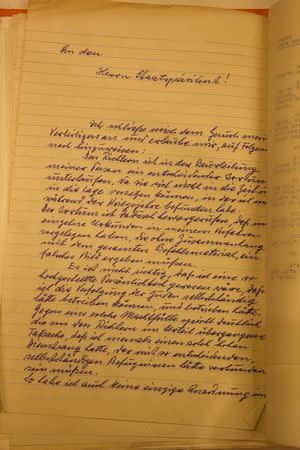 An den
Herrn Staatspräsident!
Ich schließe mich dem Gesuch meines
Verteidigers an und erlaube mir, auf Folgendes
noch hinzuweisen:
Den Richtern ist in der Beurteilung
meiner Person ein entscheidender Irrtum
unterlaufen, da sie sich nicht in die Zeit und
in die Lage versetzen können, in der ich mich
während der Kriegsjahre befunden habe.
Der Irrtum ist dadurch hervorgerufen, daß mir
einzelne Urkunden in meinem Verfahren
vorgehalten haben, die ohne Zusammenhang
mit dem gesamten Befehlsmaterial, ein
falsches Bild ergeben müssen.
Es ist nicht richtig, daß ich eine so
hochgestellte Persönlichkeit gewesen wäre, daß
ich die Verfolgung der Juden selbständig
hätte betreiben können, und betrieben hätte,
Gegen eine solche Machtfülle spricht deutlich
die von den Richtern im Urteil übergangene
Tatsache, daß ich niemals einen solch hohen
Dienstrang hatte, der mit so entscheidenden
selbstständigen Befugnissen hätte verbunden
sein müßen.
So habe ich auch keine einzige Anordnung im